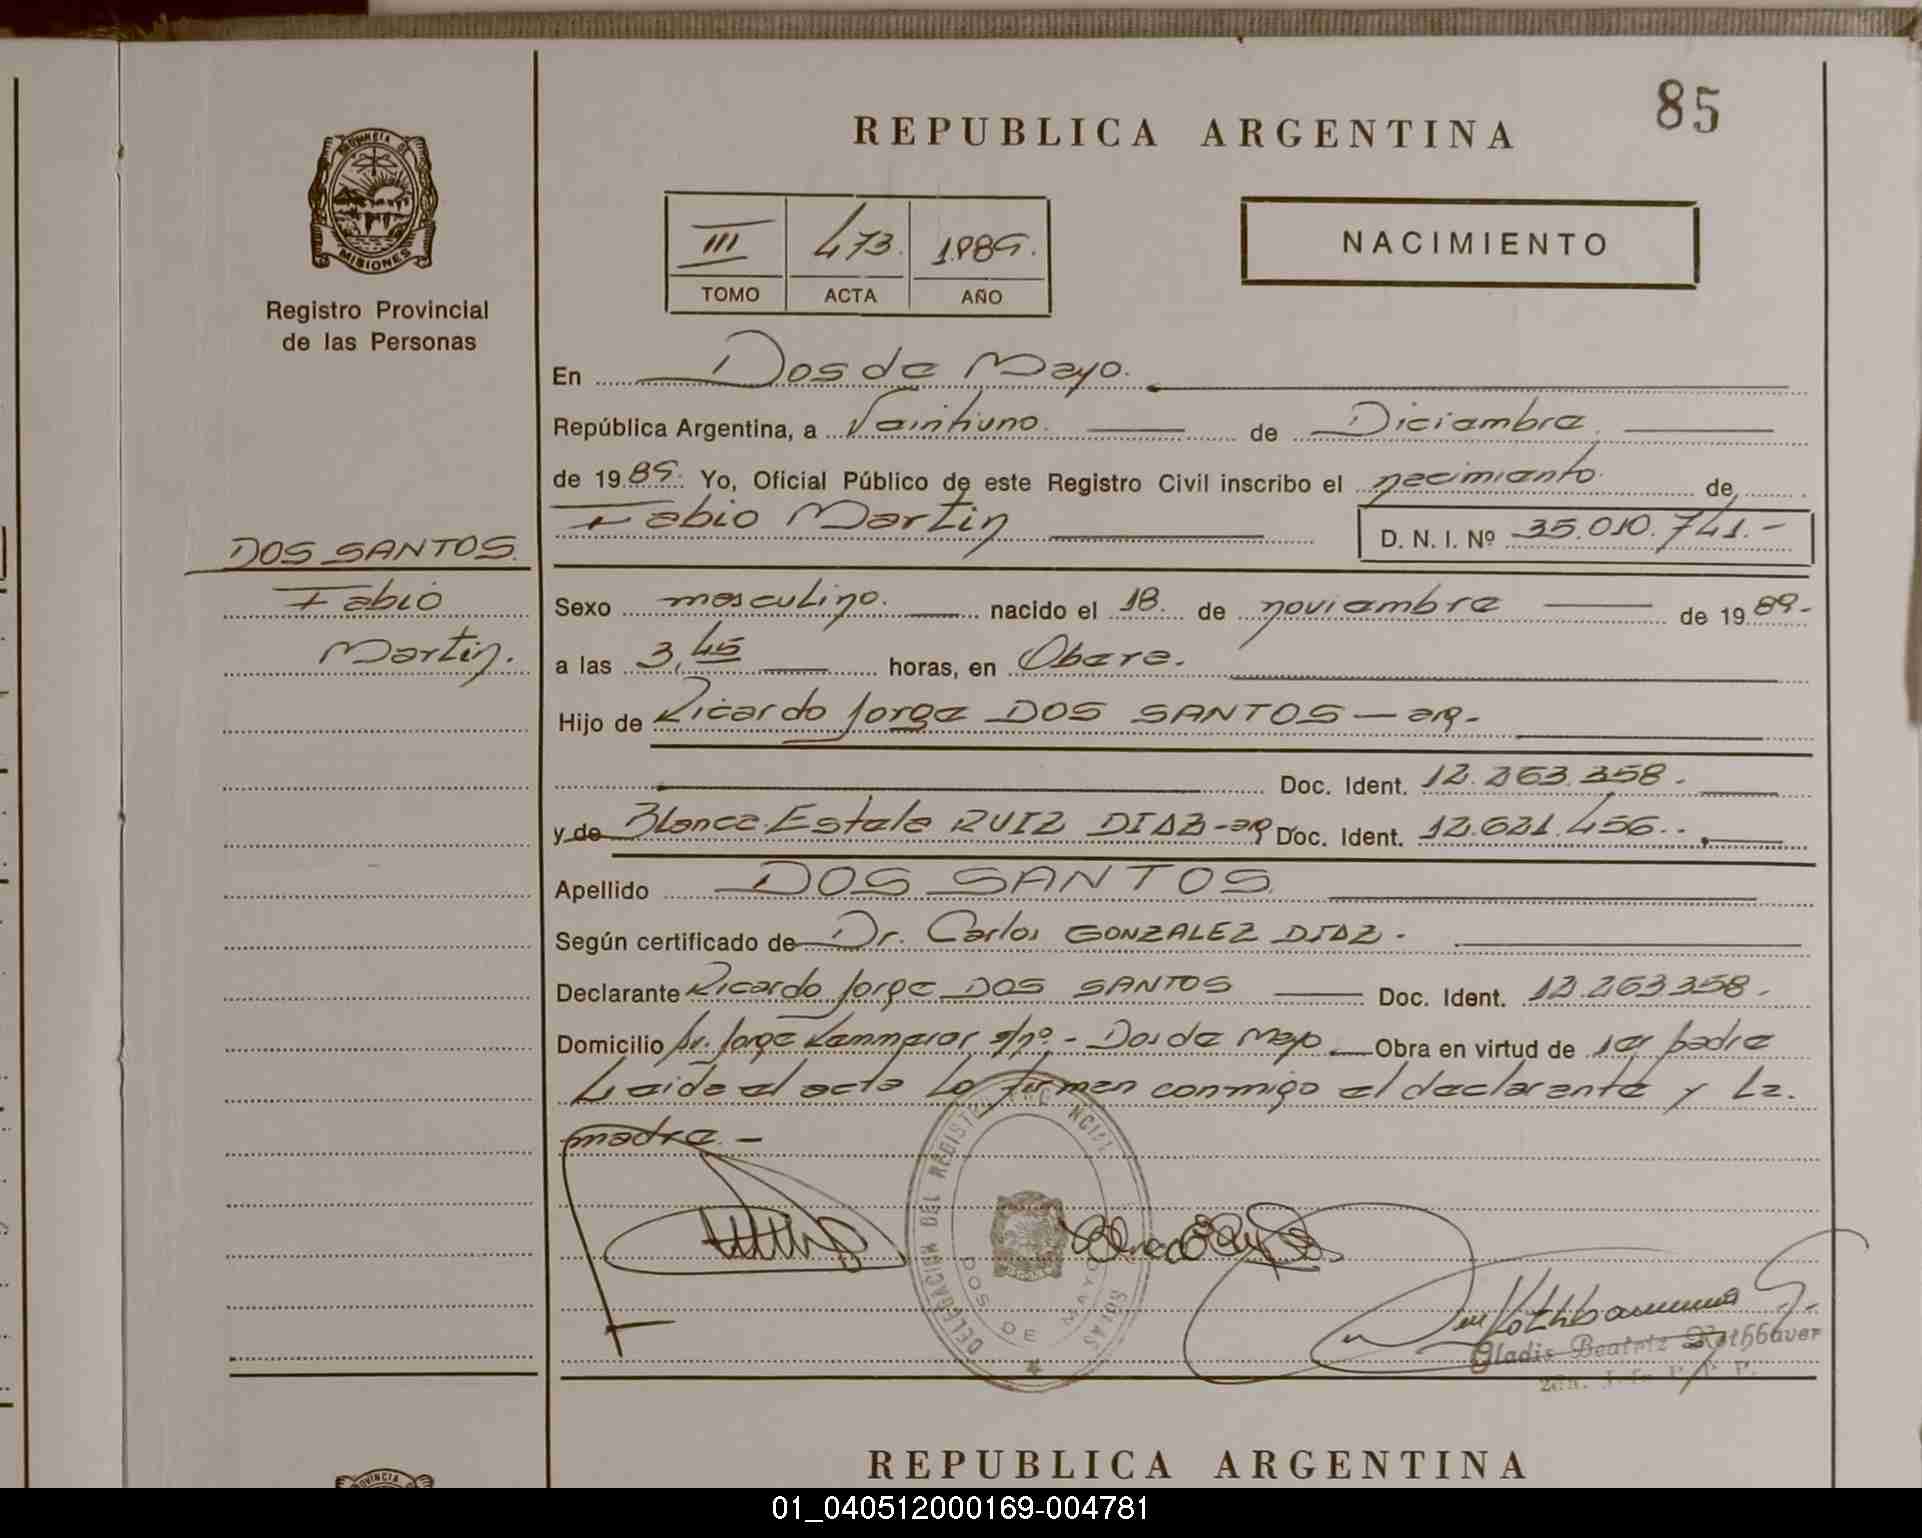 85
REPUBLICA ARGENTINA
PROVINCIA DE
MISIONES
Registro Provincial
de las Personas
III 473. 1989.
TOMO ACTA AÑO
NACIMIENTO
En Dos de Mayo.
República Argentina, a Veintiuno. de Diciembre.
de 1989. Yo, Oficial Público de este Registro Civil inscribo el nacimiento. de
Fabio Martin
D. N. I. Nº 35.010.741.-
DOS SANTOS.
Fabio
Martin.
Sexo masculino. nacido el 18. de noviembre de 1989.-
a las 3,45 horas, en Obera.
Hijo de Ricardo Jorge DOS SANTOS - arg-
Doc. Ident. 12.263.358.
y de Blanca Estela RUIZ DIAZ-arg Doc. Ident. 12.621.456.-
Apellido DOS SANTOS.
Según certificado de Dr. Carlos GONZALEZ DIAZ.
Declarante Ricardo Jorge DOS SANTOS Doc. Ident. 12.263.358.
Domicilio Av. Jorge s/nº.- Dos de Mayo Obra en virtud de ser padre
Leida el acta lo firman conmigo el declarante y la.
madre.-
DELEGACION DEL REGISTRO
DOS DE MAYO
Gladis Beatriz Rothbauer
REPUBLICA ARGENTINA
PROVINCIA
01_040512000169-004781